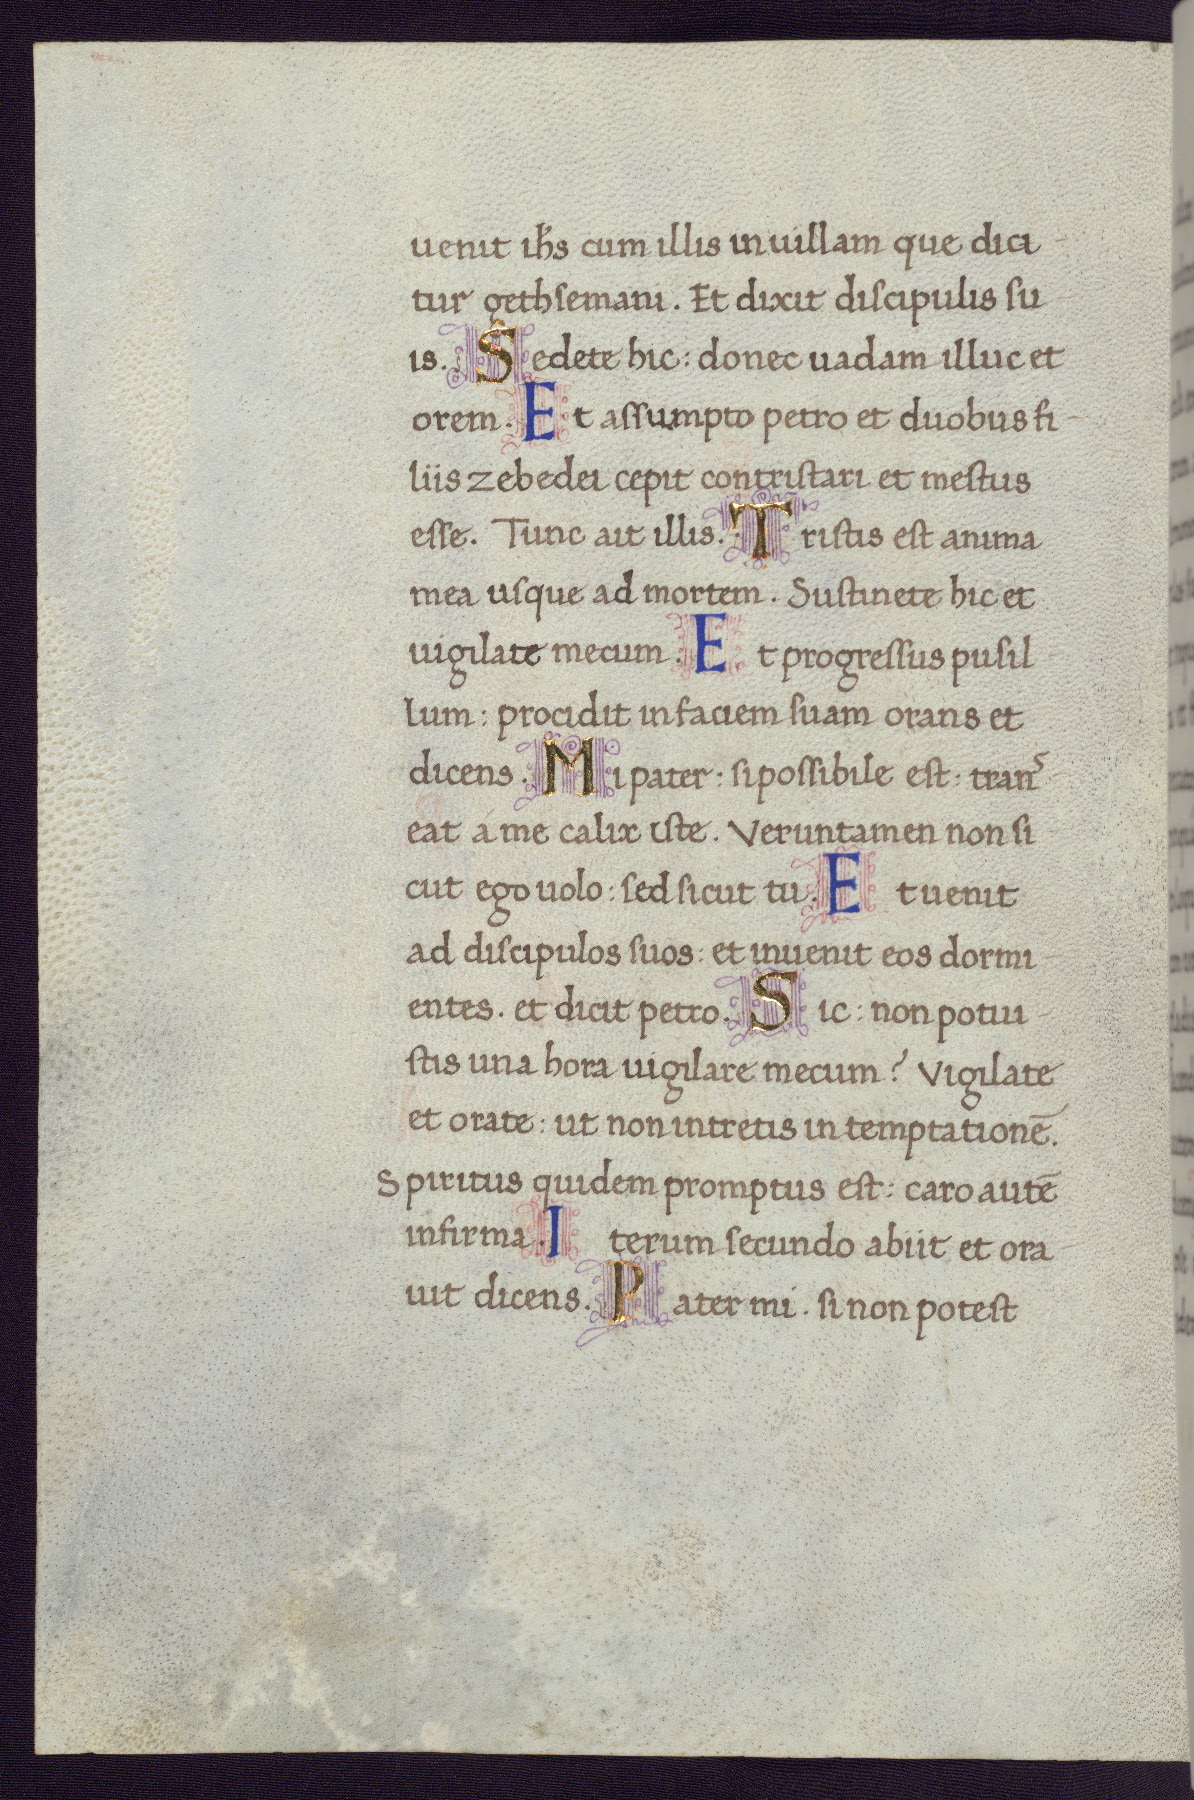 uenit ihs cum illis in uillam que dici-
tur gethsemani. Et dixit discipulis su
is. Sedete hic: donec uadam illuc et
orem. Et assumpto petro et duobus fi-
liis zebedei cepit contristari et mestus
esse. Tunc ait illis. Tristis est anima
mea usque ad mortem. Sustinete hic et
uigilate mecum. Et progressus pusil
lum: procidit in faciem suam orans et
dicens. Mi pater: si possibile est: trans
eat a me calix iste. Veruntamen non si
cut ego uolo: sed sicut tu. Et uenit
ad discipulos suos: et inuenit eos dormi-
entes. et dicit petro. Sic: non potui
stis una hora uigilare mecum? Vigilate
et orate: ut non intretis in temptationē.
Spiritus quidem promptus est: caro autē
infirma. Iterum secundo abiit et ora
uit dicens. Pater mi. si non potest